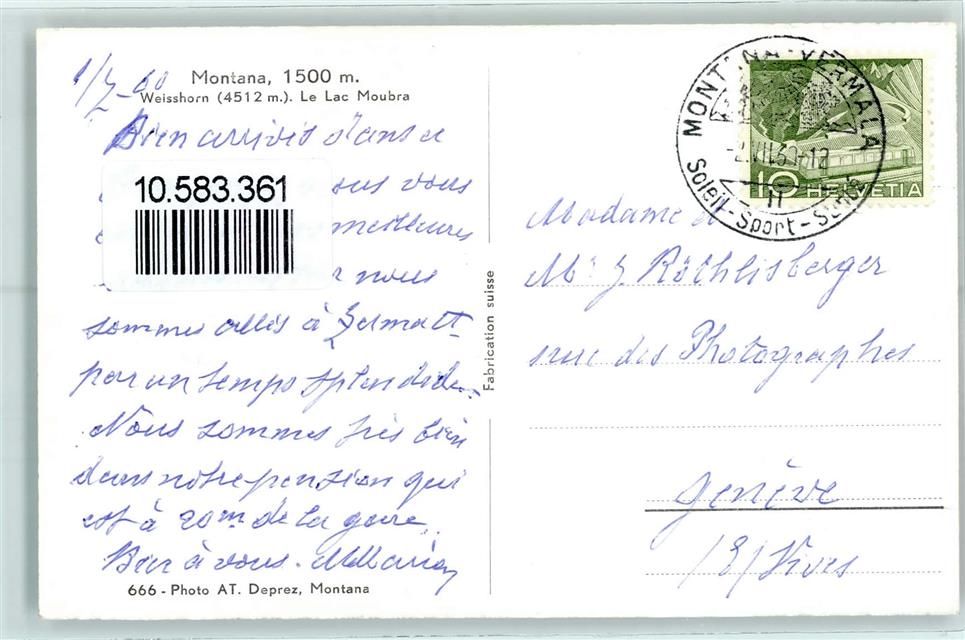 1/7-60
Montana, 1500 m.
Weisshorn (4512 m.). Le Lac Moubra
Bien arrivés
10.583.361
vous
meilleures
nous
sommes allés à Zermatt
par un temps splendide.
Nous sommes très bien
dans notre pension qui
est à 20 m. de la gare.
Bien à vous.
666 - Photo AT. Deprez, Montana
Fabrication suisse
MONTANA-VERMALA
-2.VII.60-12
II
Soleil-Sport-Santé
10 HELVETIA
Madame
Mr J. Röthlisberger
rue des Photographes
Genève
/E/Vives